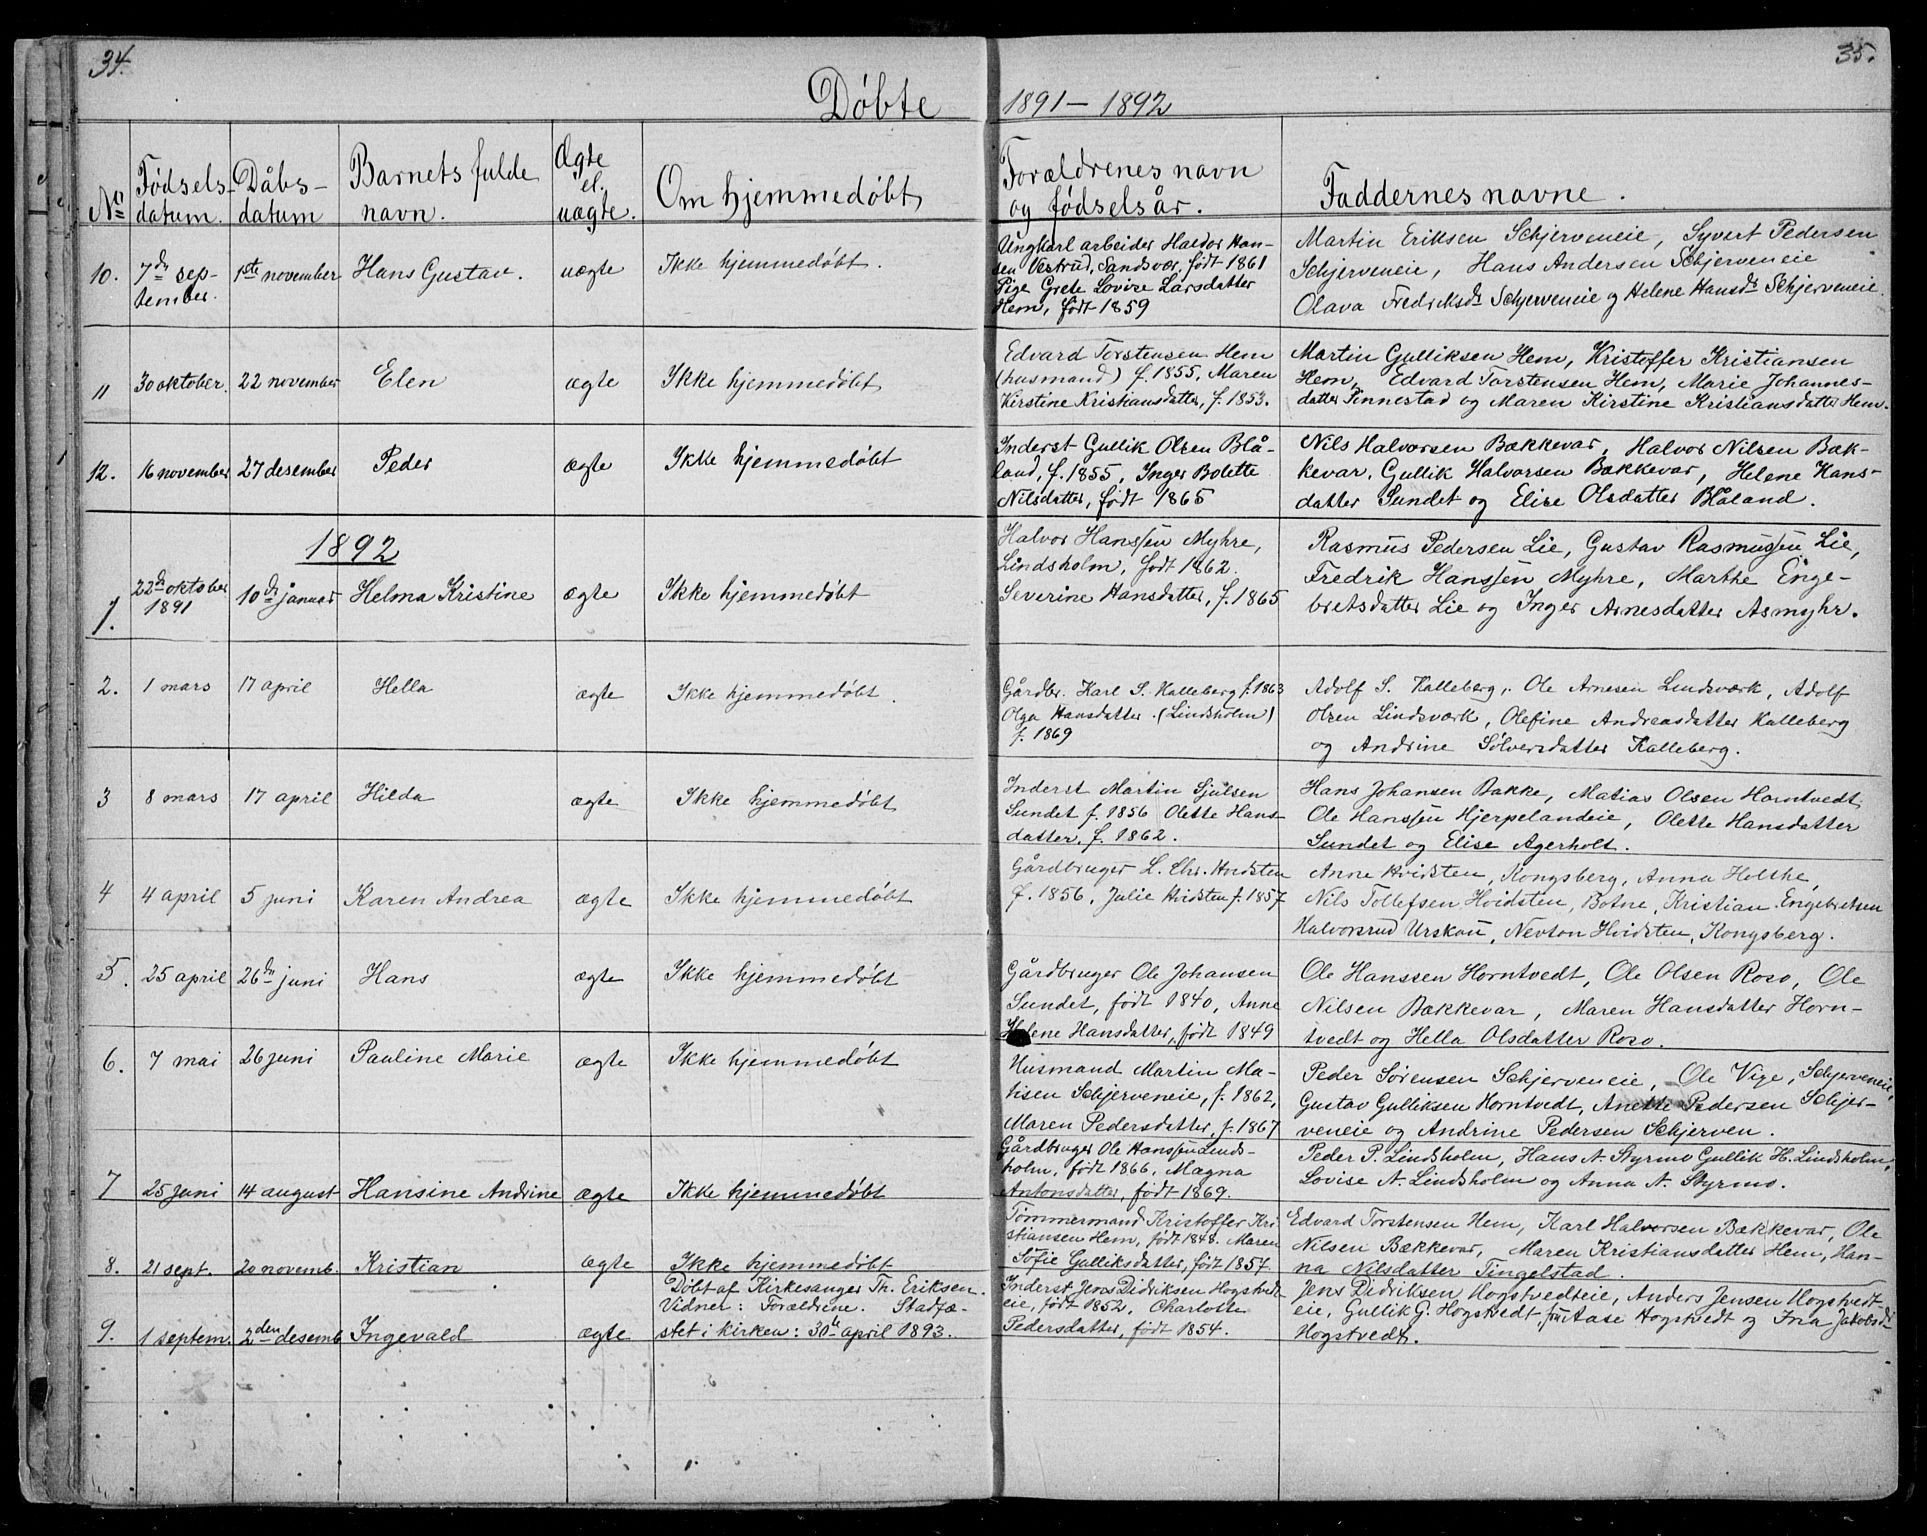 34.
35.
Døbte 1891 – 1892
No
Fødsels-
datum.
Dåbs-
datum
Barnets fulde
navn.
Ægte
el.
uægte.
Om hjemmedøbt
Forældrenes navn
og fødselsår.
Faddernes navne.
10.
7de sep-
tember.
1ste november
Hans Gustav.
uægte
Ikke hjemmedøbt.
Ungkarl arbeider Haldor Han-
sen Vestrud, Sandsvær, født 1861
Pige Grete Lovise Larsdatter
Hem, født 1859
Martin Eriksen Schjerveneie, Syvert Pedersen
Schjerveneie, Hans Andersen Schjerveneie
Olava Fredriksdr Schjerveneie og Helene Hansdr Schjerveneie
11
30 oktober.
22 november
Elen
ægte
Ikke hjemmedøbt
Edvard Torstensen Hem
(husmand) f. 1855, Maren
Kirstine Kristiansdatter, f. 1853.
Martin Gulliksen Hem, Kristoffer Kristiansen
Hem, Edvard Torstensen Hem, Marie Johannes-
datter Pinnestad og Maren Kirstine Kristiansdatter Hem.
12.
16 november
27 desember
Peder
ægte
Ikke hjemmedøbt
Inderst Gullik Olsen Blå-
land, f. 1855, Inger Bolette
Nilsdatter, født 1865
Nils Halvorsen Bækkevar, Halvor Nilsen Bæk-
kevar, Gullik Halvorsen Bækkevar, Helene Hans-
datter Sundet og Elise Olsdatter Blåland.
1892
1.
22de oktober
1891
10de januar
Helma Kristine
ægte
Ikke hjemmedøbt
Halvor Hanssen Myhre,
Lindsholm, født 1862.
Severine Hansdatter, f. 1865
Rasmus Pedersen Lie, Gustav Rasmussen Lie,
Fredrik Hanssen Myhre, Marthe Enge-
bretsdatter Lie og Inger Arnesdatter Asmyhr.
2.
1 mars
17 april
Hella
ægte
Ikke hjemmedøbt.
Gårdbr. Karl S. Kalleberg f. 1863
Olga Hansdatter (Lindsholm)
f. 1869
Adolf S. Kalleberg, Ole Arnesen Lindsværk, Adolf
Olsen Lindsværk, Olefine Andreasdatter Kalleberg
og Andrine Sølversdatter Kalleberg.
3
8 mars
17 april
Hilda
ægte
Ikke hjemmedøbt
Inderst Martin Sjulsen
Sundet f. 1856 Olette Hans-
datter, f. 1862.
Hans Johansen Bakke, Matias Olsen Horntvedt,
Ole Hanssen Hjerpelandeie, Olette Hansdatter
Sundet og Elise Agerholt.
4
4 april
5 juni
Karen Andrea
ægte
Ikke hjemmedøbt
Gårdbruger L. Chr. Hvidsten
f. 1856, Julie Hvidsten f. 1857
Anne Hvidsten, Kongsberg, Anna Holthe,
Nils Tollefsen Hvidsten, Botne, Kristian Engebretsen
Halvorsrud Urskou, Nevton Hvidsten, Kongsberg.
5.
25 april
26de juni
Hans
ægte
Ikke hjemmedøbt
Gårdbruger Ole Johansen
Sundet, født 1840, Anne
Helene Hansdatter, født 1849
Ole Hanssen Horntvedt, Ole Olsen Roso, Ole
Nilsen Bækkevar, Maren Hansdatter Horn-
tvedt og Hella Olsdatter Roso.
6.
7 mai
26 juni
Pauline Marie
ægte
Ikke hjemmedøbt
Husmand Martin Ma-
tisen Schjerveneie, f. 1862,
Maren Pedersdatter, f. 1867
Peder Sørensen Schjerveneie, Ole Vige, Schjerveneie,
Gustav Gulliksen Horntvedt, Anette Pedersen Schjer-
veneie og Andrine Pedersen Schjerven.
7
25 juni
14 august
Hansine Andrine
ægte
Ikke hjemmedøbt
Gårdbruger Ole Hanssen Linds-
holm, født 1866, Magna
Antonsdatter, født 1869.
Peder P. Lindsholm, Hans A. Styrmo Gullik H. Lindsholm,
Lovise A. Lindsholm og Anna A. Styrmo.
8.
21 sept.
20 novemb.
Kristian
ægte
Ikke hjemmedøbt
Tømmermand Kristoffer Kri-
stiansen Hem, født 1848. Maren
Sofie Gulliksdatter, født 1857
Edvard Torstensen Hem, Karl Halvorsen Bækkevar, Ole
Nilsen Bækkevar, Maren Kristiansdatter Hem, Han-
na Nilsdatter Tingelstad.
9.
1 septem.
2den desemb.
Ingevald
ægte
Døbt af Kirkesanger Th. Eriksen.
Vidner: Forældrene. Stadfæ-
stet i kirken: 30te april 1893.
Inderst Jens Didriksen Hogstvedt-
eie, født 1852, Charlotte
Pedersdatter, født 1854.
Jens Didriksen Hogstvedteie, Anders Jensen Hogstvedt-
eie, Gullik G. Hogstvedt, Aase Hogstvedt og Jakobsdr
Hogstvedt.